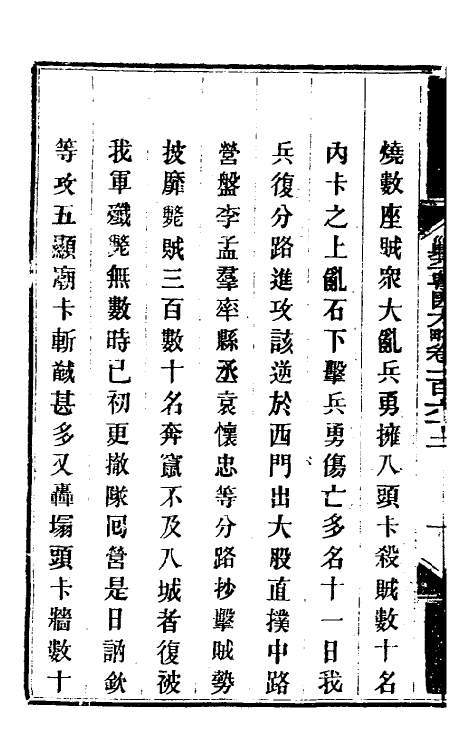 燒數座賊眾大亂兵勇擁入頭卡殺賊數十名
內卡之上亂石下擊兵勇傷亡多名十一日我
兵復分路進攻該逆於西門出大股直撲中路
營盤李孟羣率縣丞袁懷忠等分路抄擊賊勢
披靡斃賊三百數十名奔竄不及入城者復被
我軍殲斃無數時已初更撤隊囘營是日訥欽
等攻五顯廟卡斬馘甚多又轟塌頭卡牆數十